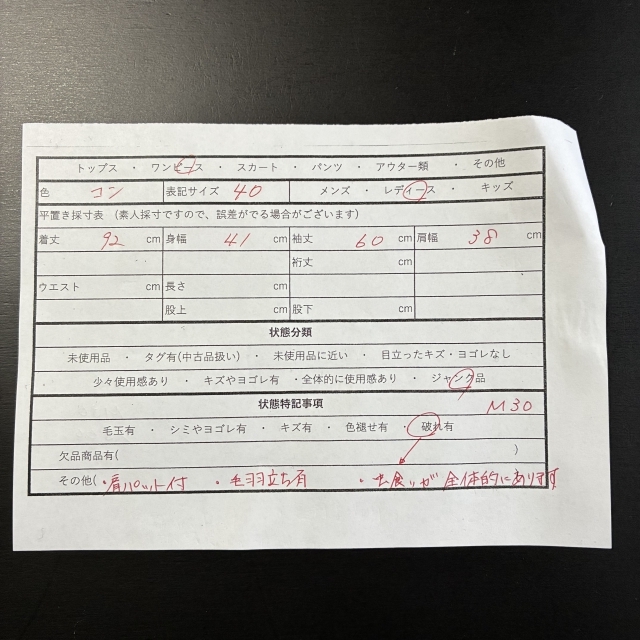 トップス ・ ワンピース ・ スカート ・ パンツ ・ アウター類 ・ その他
色 コン 表記サイズ 40 メンズ ・ レディース ・ キッズ
平置き採寸表 (素人採寸ですので、誤差がでる場合がございます)
着丈 92 cm 身幅 41 cm 袖丈 60 cm 肩幅 38 cm
裄丈 cm
ウエスト cm 長さ cm
股上 cm 股下 cm
状態分類
未使用品 ・ タグ有(中古品扱い) ・ 未使用品に近い ・ 目立ったキズ・ヨゴレなし
少々使用感あり ・ キズやヨゴレ有 ・全体的に使用感あり ・ ジャンク品
状態特記事項 M30
毛玉有 ・ シミやヨゴレ有 ・ キズ有 ・ 色褪せ有 ・ 破れ有
欠品商品有( )
その他( ・肩パット付 ・毛羽立ち有 ・ 全体的にあります